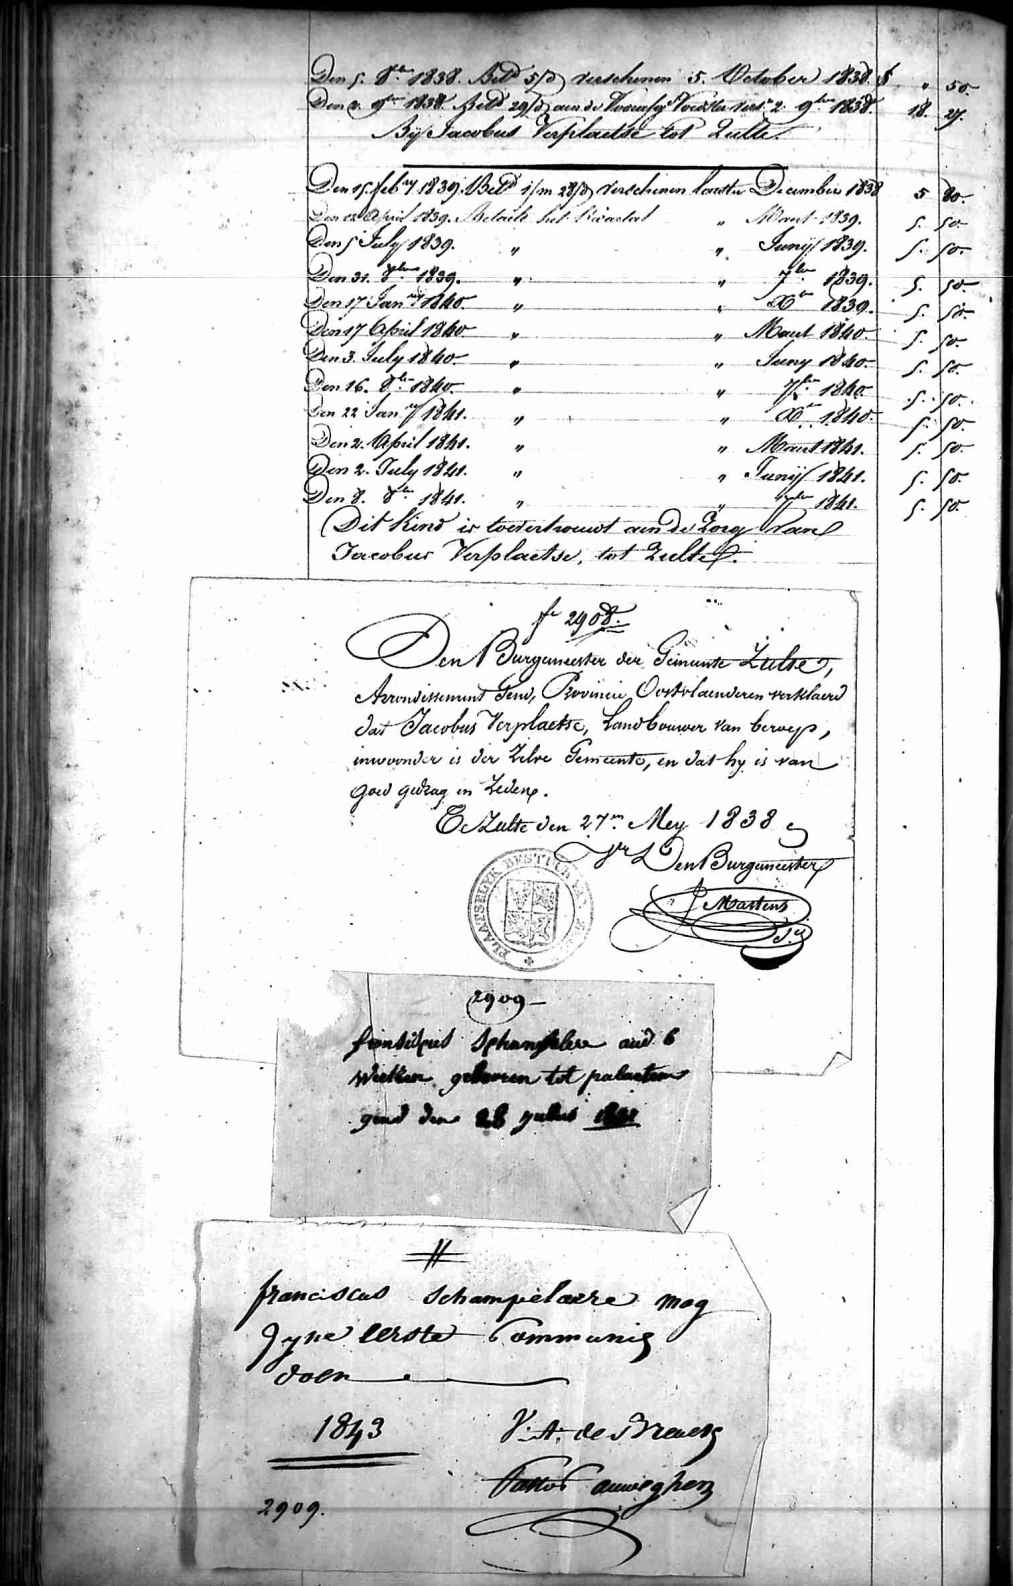 Den 5. 8bre 1838. Betd 5/d verschenen 5. October 1838. f " 50.
Den 2. 9bre 1838. Betd 29/d aen de Voorsg. Voedster vers. 2. 9bre 1838. 18. 27.
By Jacobus Verplaetse tot Zulte.
Den 15 febry 1839. Betd i/m 28/d verschenen laesten December 1838 5 80.
Den 12 April 1839. Betaelt het kwartal " Maert 1839. 5. 50.
Den 5 July 1839. " " Junij 1839. 5. 50.
Den 31. 8bre 1839. " " 7bre 1839. 5. 50.
Den 17 Janry 1840. " " Xbre 1839. 5. 50.
Den 17 April 1840. " " Maert 1840. 5. 50.
Den 3. July 1840. " " Juny 1840. 5. 50.
Den 16. 8bre 1840. " " 7bre 1840. 5. 50.
Den 22 Janry 1841. " " Xbre 1840. 5. 50.
Den 2. April 1841. " " Maert 1841. 5. 50.
Den 2. July 1841. " " Junij 1841. 5. 50.
Den 8. 8bre 1841. " " 7bre 1841. 5. 50.
Dit Kind is toevertrouwt aen de Zorg van
Jacobus Verplaetse, tot Zulte.
2908.
Den Burgemeester der Gemeente Zulte,
Arrondissement Gend, Provincie Oostvlaenderen verklaerd
dat Jacobus Verplaetse, Landbouwer van beroep,
inwoonder is der Zelve Gemeente, en dat hy is van
goed gedrag en Zeden.
Zulte den 27en Mey 1838
Den Burgemeester
J Martens
PLAATSELYK BESTUUR VAN
2909
Schampelare oud 6
weeken geboren tot
gend den 28 1831
franciscus schampelaere mag
zyne eerste Communie
doen
1843 V. A. de
Pastor auweghem
2909.